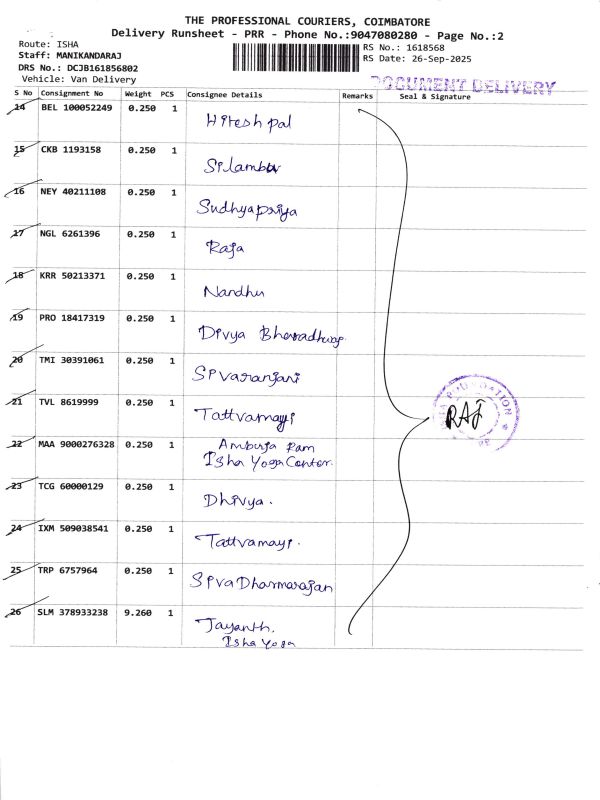 THE PROFESSIONAL COURIERS, COIMBATORE
Delivery Runsheet - PRR - Phone No.:9047080280 - Page No.:2
Route: ISHA
Staff: MANIKANDARAJ
DRS No.: DCJB161856802
Vehicle: Van Delivery
RS No.: 1618568
RS Date: 26-Sep-2025
DOCUMENT DELIVERY
S No Consignment No Weight PCS Consignee Details Remarks Seal & Signature
14 BEL 100052249 0.250 1 Hitesh pal
15 CKB 1193158 0.250 1 Silambu
16 NEY 40211108 0.250 1 Sudhyapriya
17 NGL 6261396 0.250 1 Raja
18 KRR 50213371 0.250 1 Nandhu
19 PRO 18417319 0.250 1 Divya Bharadhwaj
20 TMI 30391061 0.250 1 Sivaranjani
21 TVL 8619999 0.250 1 Tattvamayi
22 MAA 9000276328 0.250 1 Ambuja Ram
Isha Yoga Center.
23 TCG 60000129 0.250 1 Dhivya.
24 IXM 509038541 0.250 1 Tattvamayi.
25 TRP 6757964 0.250 1 Siva Dharmarajan
26 SLM 378933238 9.260 1 Jayanth.
Isha Yoga
RAJ